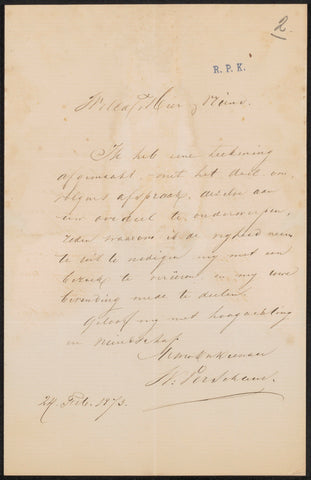 2.
R.P.K.
WelEd. Heer & Vriend.
Ik heb eene teekening
afgemaakt met het doel om
volgens afspraak, dezelve aan
uw oordeel te onderwerpen,
reden waarom ik de vrijheid neem
U uit te nodigen mij met een
bezoek te vereeren en mij uwe
bevinding mede te deelen
Geloof mij met hoogachting
en vriendschap
W. Verschuur.
24 Feb. 1873.